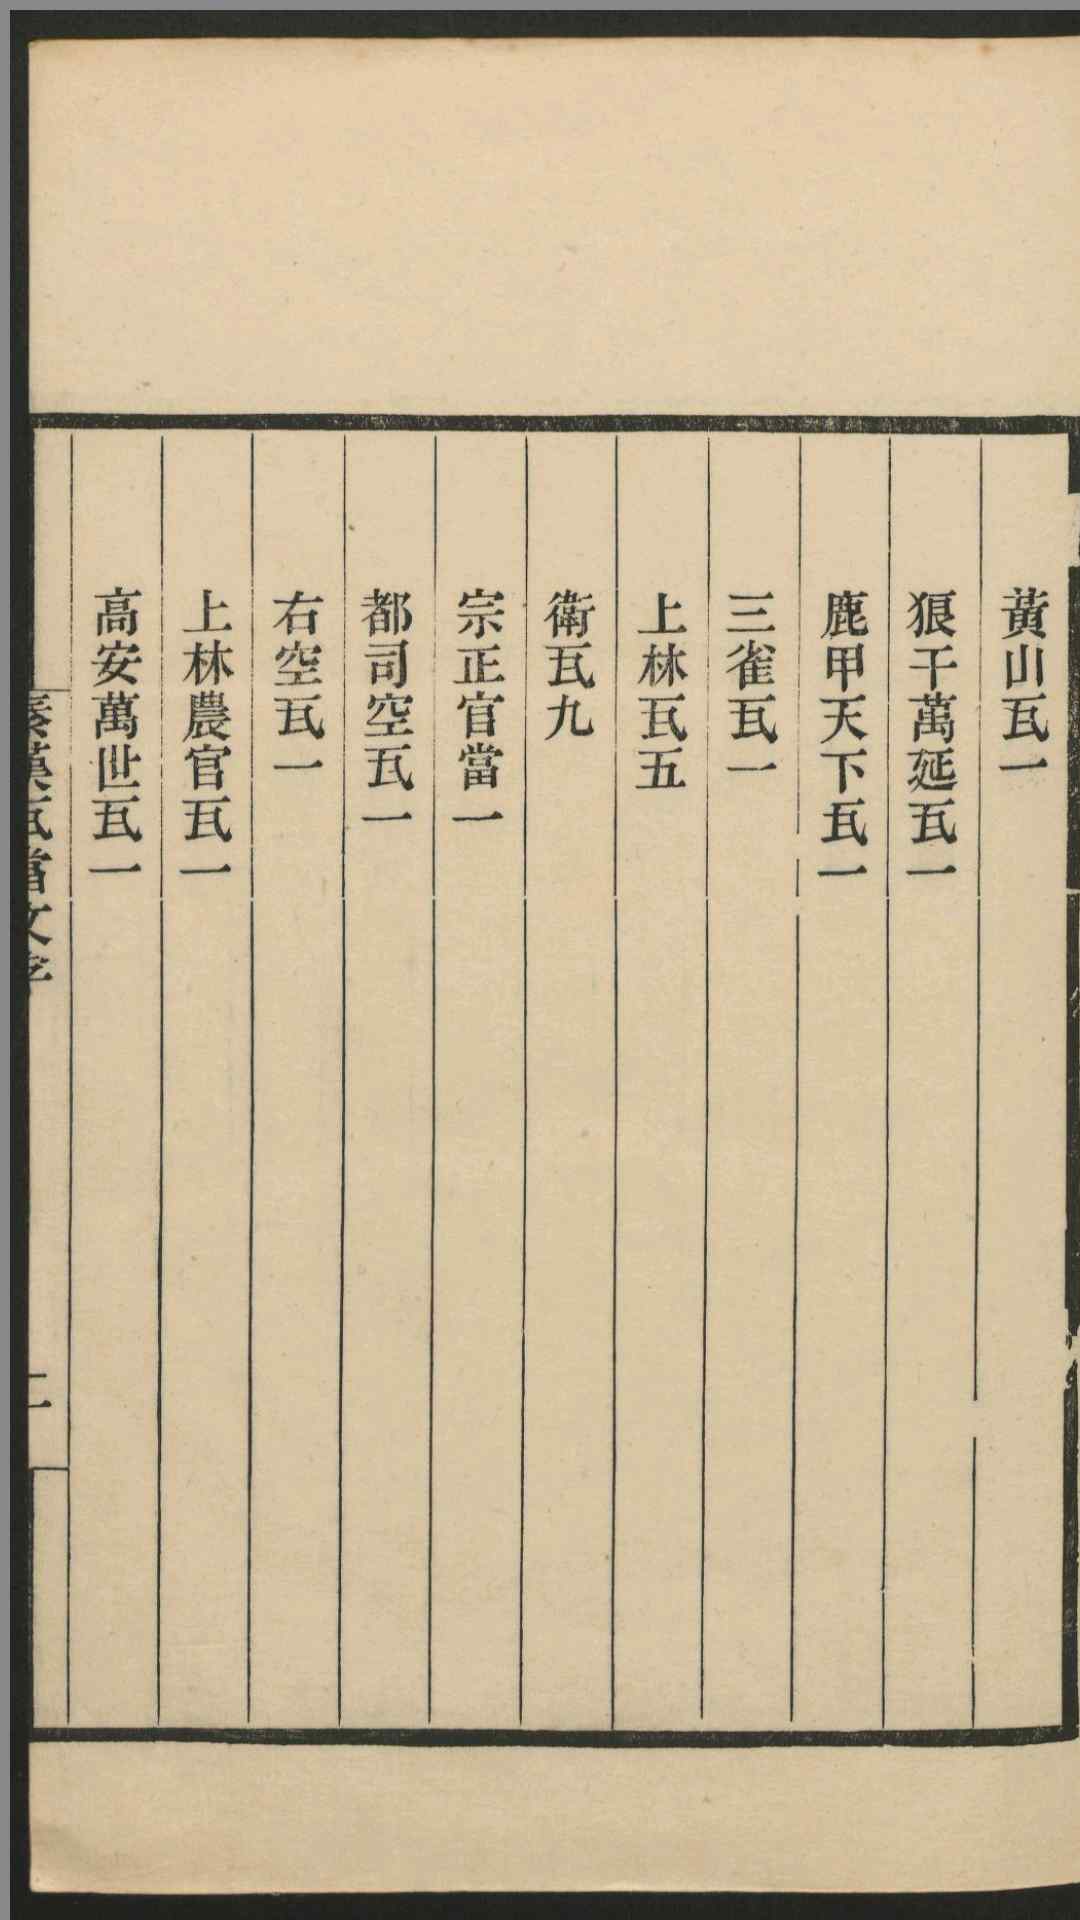 黃山瓦一
狼干萬延瓦一
鹿甲天下瓦一
三雀瓦一
上林瓦五
衛瓦九
宗正官當一
都司空瓦一
右空瓦一
上林農官瓦一
高安萬世瓦一
秦漢瓦當文字
二